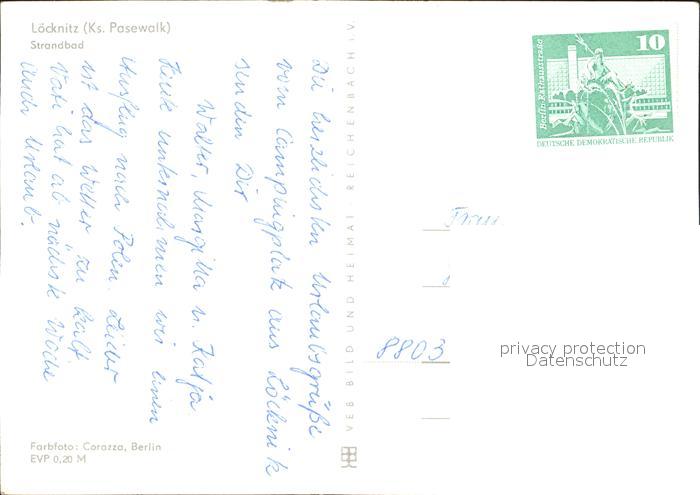 Löcknitz (Ks. Pasewalk)
Strandbad
Die herzlichsten Urlaubsgrüße
vom Campingplatz aus Löcknitz
senden Dir
Walter, Margitta u. Katja.
Heute unternahmen wir einen
Ausflug nach Polen. Leider
ist das Wetter zu kalt.
Vati hat ab nächste Woche
auch Urlaub.
Farbfoto: Corazza, Berlin
EVP 0,20 M
VEB BILD UND HEIMAT · REICHENBACH i V
Berlin-Rathausstraße
10
DEUTSCHE DEMOKRATISCHE REPUBLIK
Frau
8803
privacy protection
Datenschutz